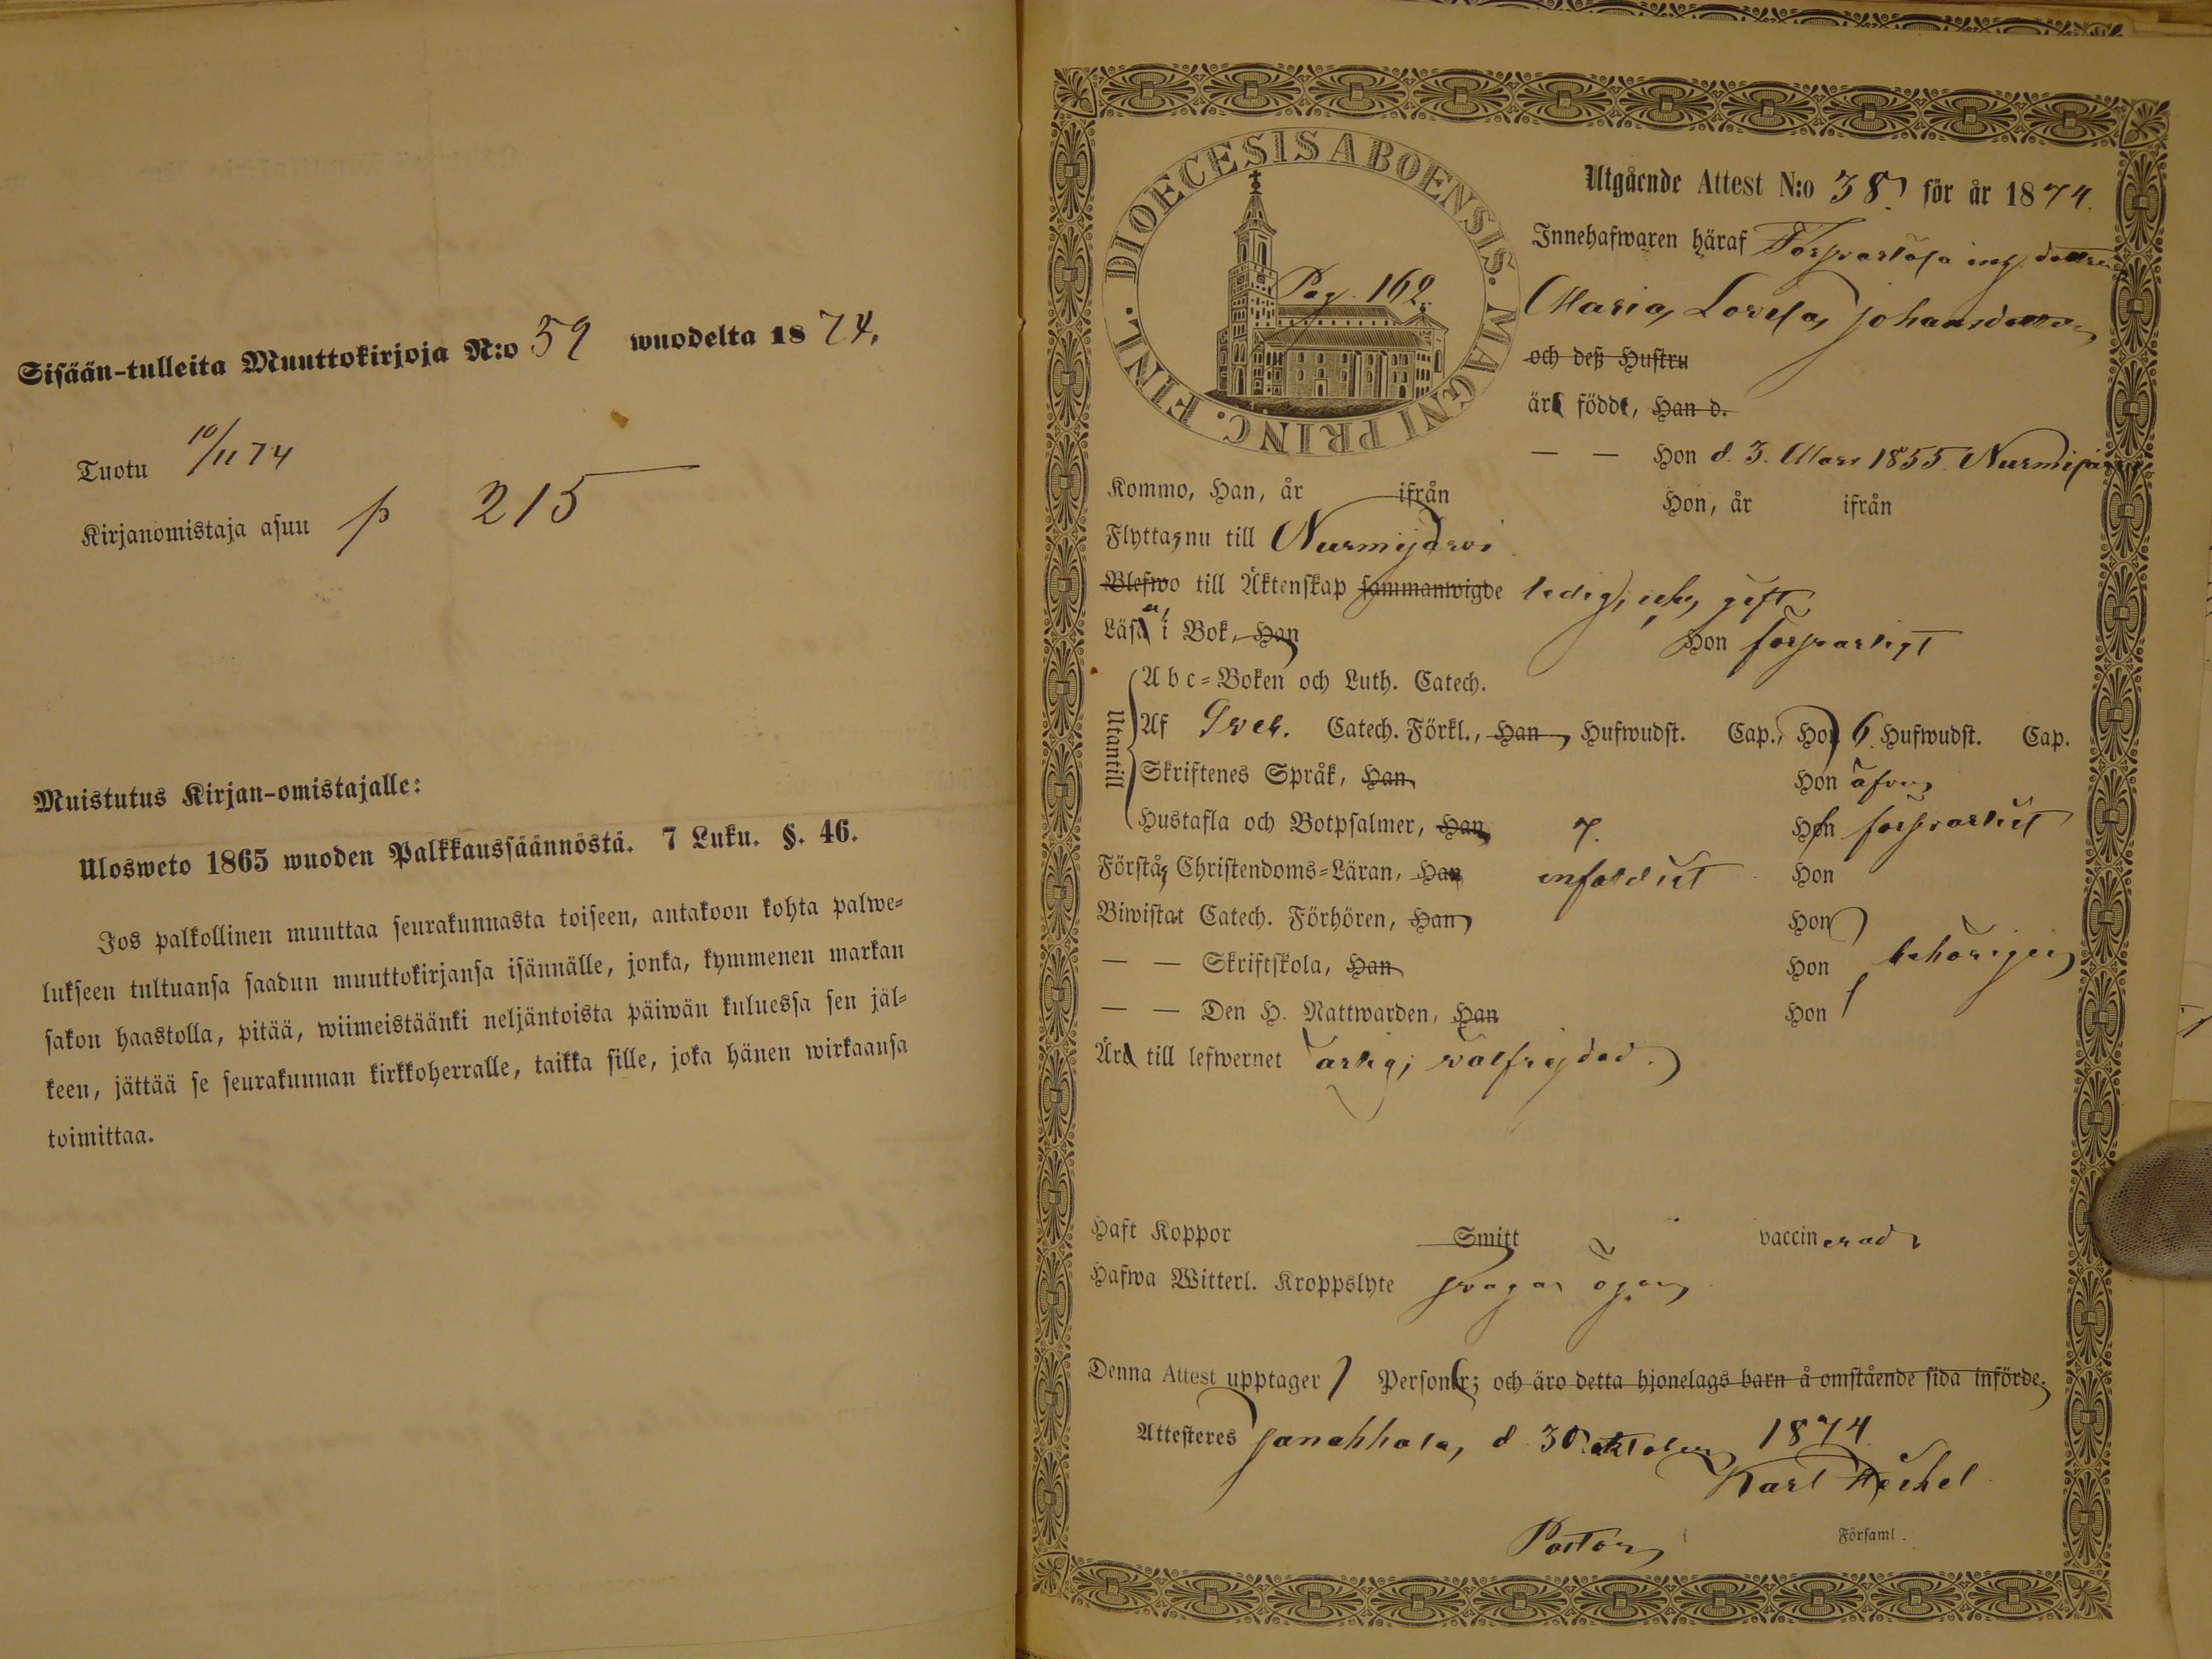 Sisään-tulleita Muuttokirjoja N:o 59 wuodelta 1874.
Tuotu 10/11 74
Kirjanomistaja asuu p 215
Muistutus Kirjan-omistajalle:
Ulosweto 1865 wuoden Palkkaussäännöstä. 7 Luku. §. 46.
Jos palkollinen muuttaa seurakunnasta toiseen, antakoon kohta palwe-
lukseen tultuansa saadun muuttokirjansa isännälle, jonka, kymmenen markan
sakon haastolla, pitää, wiimeistäänki neljäntoista päiwän kuluessa sen jäl-
keen, jättää se seurakunnan kirkkoherralle, taikka sille, joka hänen wirkaansa
toimittaa.
DIOECESIS ABOENSIS. MAGNI PRINC. FINL.
Pag. 162.
Utgående Attest N:o 38. för år 1874.
Innehafwaren häraf Försvarslösa
Maria Lovisa Johansdotter
och deß Hustru
är födde, Han d.
— — Hon d. 3. Mars 1855. Nurmijärvi
Kommo, Han, år ifrån Hon, år ifrån
Flytta, nu till Nurmijärvi
Blefwo till Äktenskap sammanwigde ledig, icke gift
Läsa i Bok, Han Hon försvarligt
Utantill
Abc-Boken och Luth. Catech.
Af Sveb. Catech. Förkl., Han Hufwudst. Cap., Hon 6. Hufwudst. Cap.
Skriftenes Språk, Han Hon äfven
Hustafla och Botpsalmer, Han 7. Hon försvarligt
Förstå, Christendoms-Läran, Han enfaldigt Hon
Biwistat Catech. Förhören, Han Hon
— — Skriftskola, Han Hon behörigen
— — Den H. Nattwarden, Han Hon
Är till lefwernet ärlig, välfrejdad.
Haft Koppor Smitt vaccinerad
Hafwa Witterl. Kroppslyte svaga ögon
Denna Attest upptager 1 Person; och äro detta hjonelags barn å omstående sida införde.
Attesteras Janakkala, d. 30 oktober 1874.
Karl Heikel
Pastor i Församl.